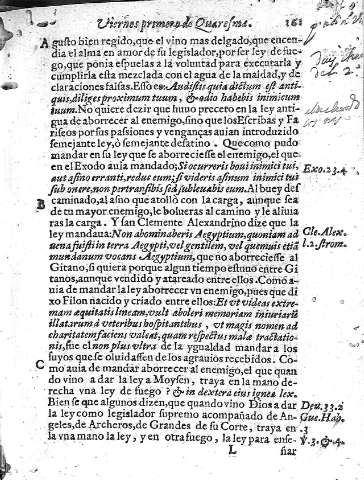 Viernes primero de Quaresma. 161
Agusto bien regido, que el vino mas delgado, que encen-
dia el alma en amor de su legislador, por ser ley de fue-
go, que ponia espuelas a la voluntad para executarla y
cumplirla esta mezclada con el agua de la maldad, y de
claraciones falsas. Esso es: Audistis quia dictum est anti-
quis, diliges proximum tuum, & odio habebis inimicum
tuum. No quiere dezir que huuo precepto en la ley anti-
gua de aborrecer al enemigo, sino que los Escribas y Fa
riseos por sus passiones y venganças auian introduzido
semejante ley, ò semejante desatino. Que como pudo
mandar en su ley que se aborreciesse el enemigo, el que
en el Exodo auia mandado, Si ocurreris boui inimici tui,
aut asino erranti, reduc eum; si videris asinum inimici tui
sub onere, non pertransibis sed subleuabis eum. Al buey des
caminado, al asno que atollò con la carga, aunque sea
B
de tu mayor enemigo, le bolueras al camino y le aliuia
ras la carga. Y san Clemente Alexandrino dize que la
ley mandaua: Non abominaberis Aegyptium, quoniam ad
uena fuisti in terra Aegypti, vel gentilem, vel quemuis etiã
mundanum vocans Aegyptium, que no aborreciesse al
Gitano, si quiera porque algun tiempo estuuo entre Gi
tanos, aunque vendido y atareado entre ellos. Como a-
uia de mandar la ley aborrecer vn enemigo, pues que di
xo Filon nacido y criado entre ellos: Et vt videas extre-
mam æquitatis lineam, vult aboleri memoriam iniuriarũ
illatarum à veteribus hospitantibus, vt magis nomen ad
charitatem faciens valeat, quam respectus malæ tractatio-
nis, fue el non plus vltra de la ygualdad mandar a los
suyos que se oluidassen de los agrauios recebidos. Co-
C
mo auia de mandar aborrecer al enemigo, el que quan
do vino a dar la ley a Moysen, traya en la mano de-
recha vna ley de fuego? & in dextera eius ignea lex.
Bien se que algunos dizen, que quando vino Dios a dar
la ley como legislador supremo acompañado de An-
geles, de Archeros, de Grandes de su Corte, traya en
la vna mano la ley, y en otra fuego, la ley para ense-
L ñar
Exo. 23. 4
Cle. Alex.
l. 2. strom.
Deu. 33. 2
Gue. Hap.
3
v. 3. & 4.